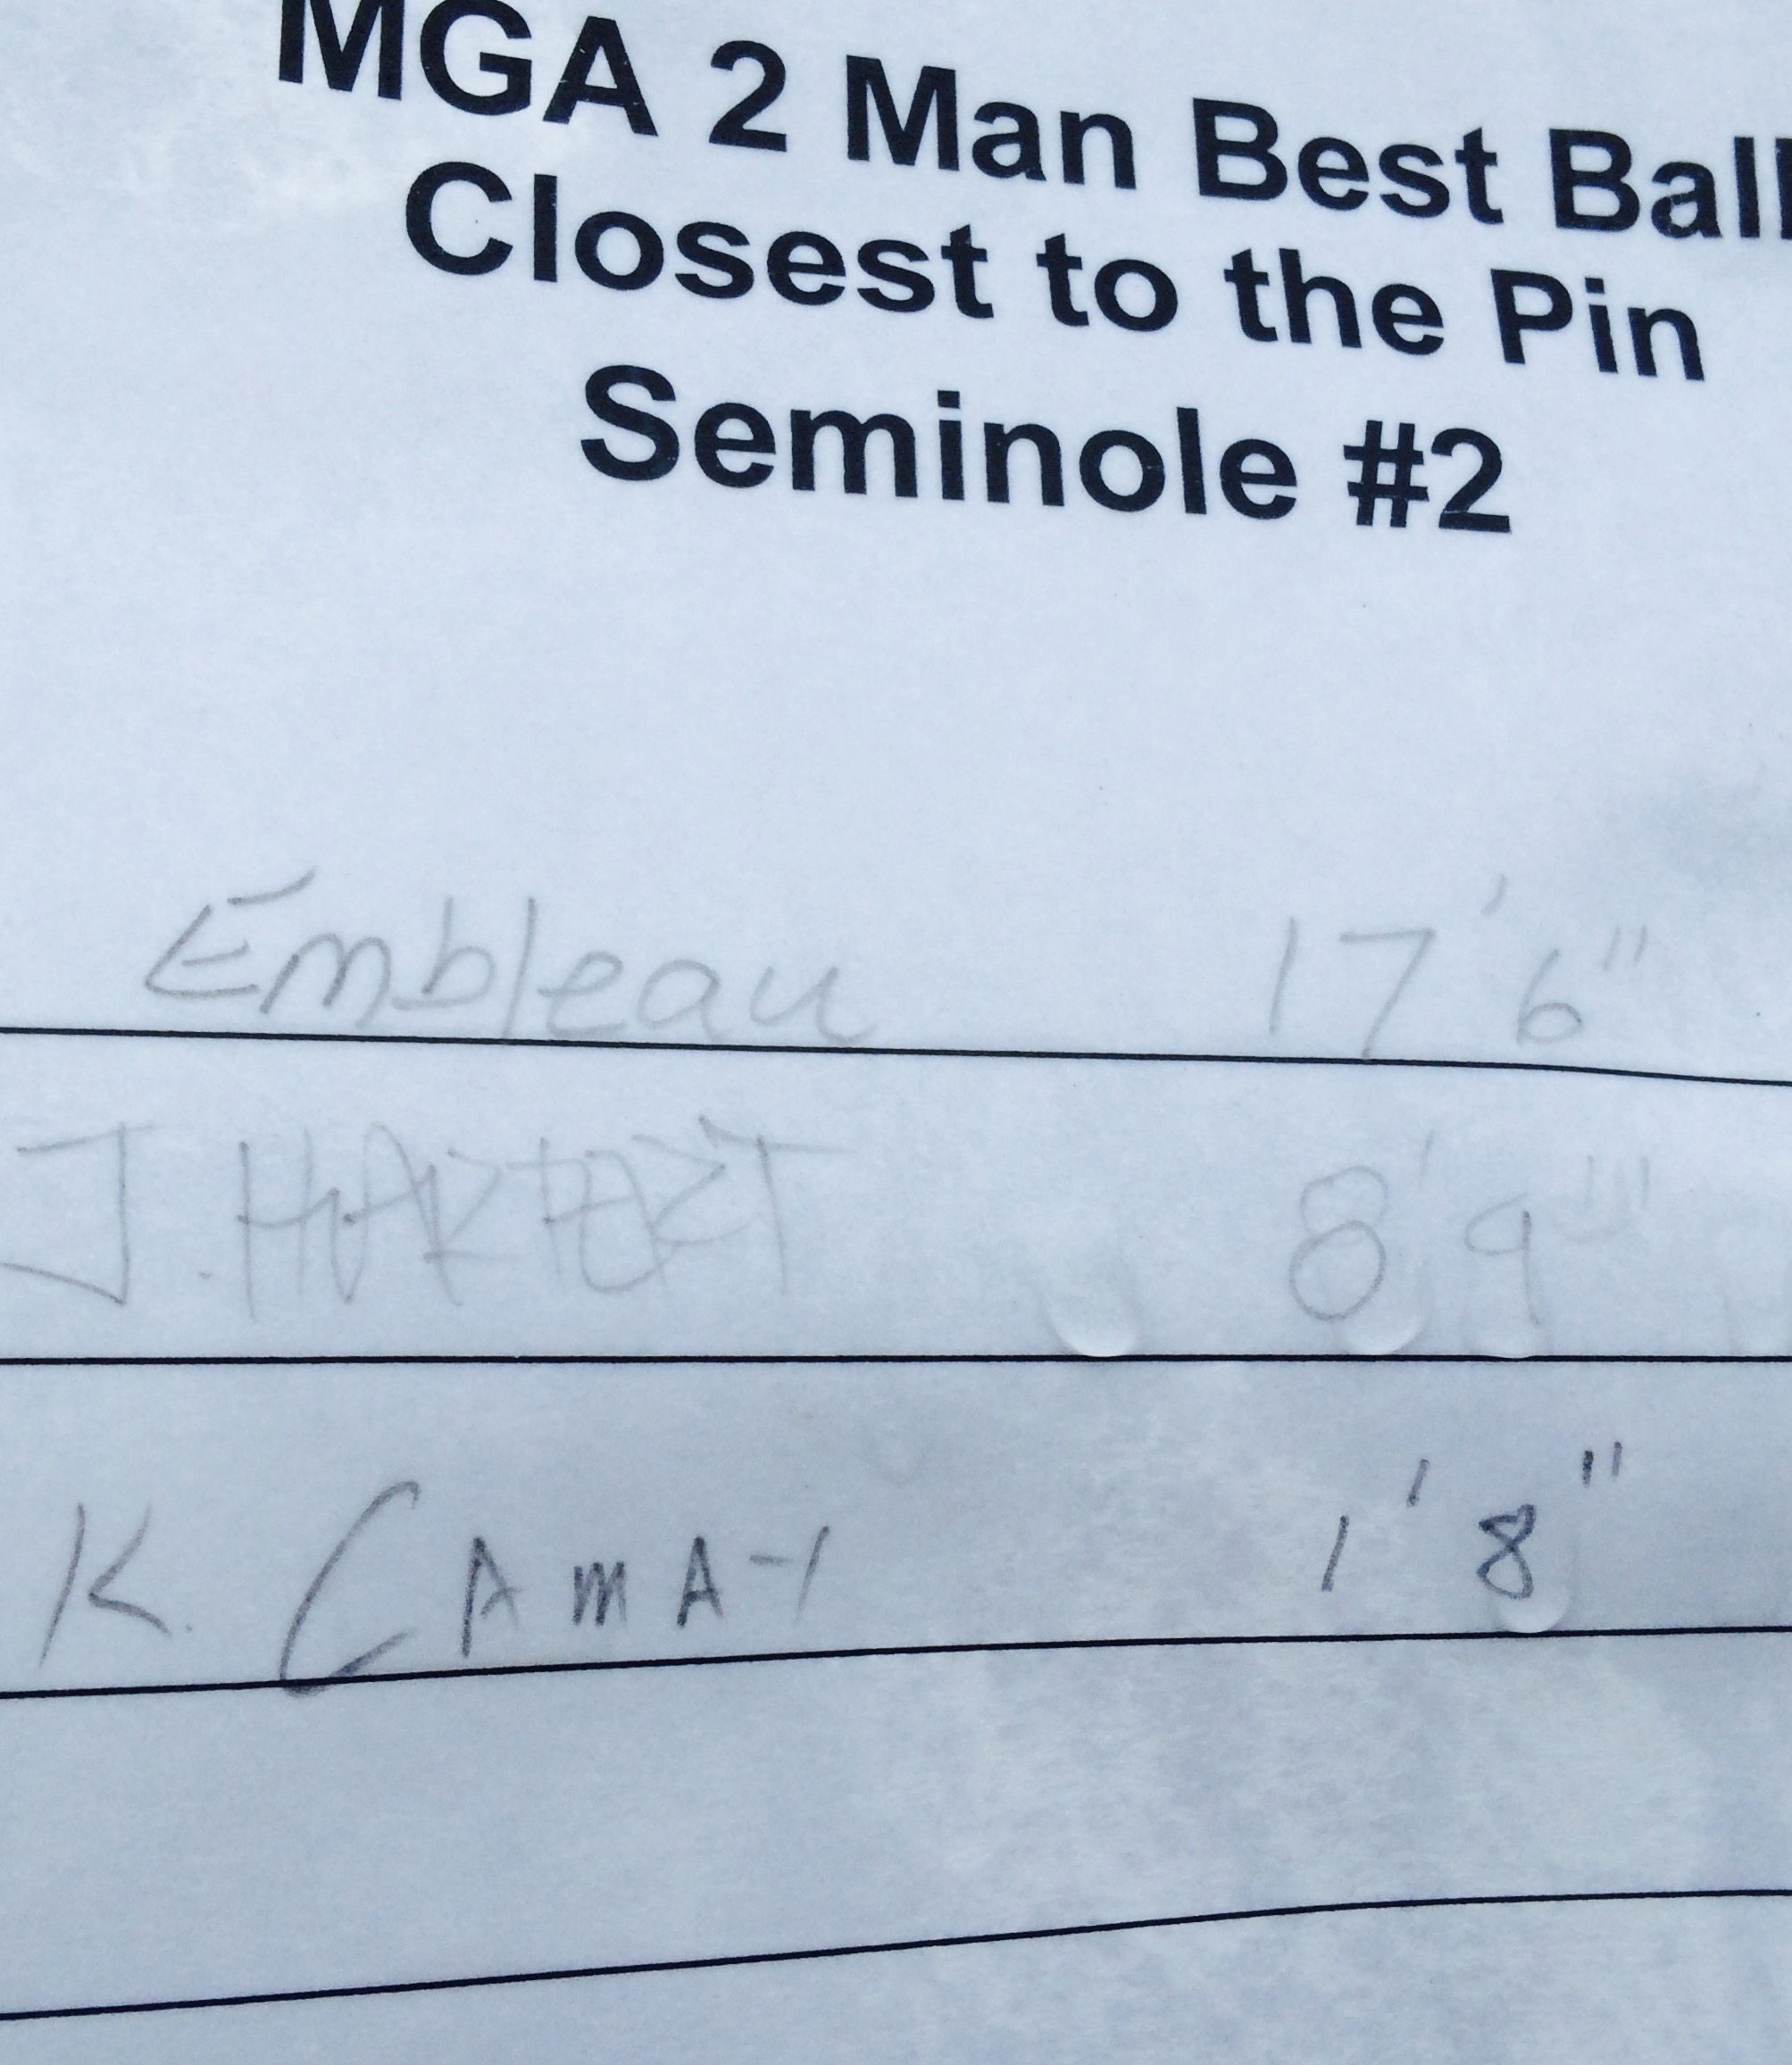 MGA 2 Man Best Ball
Closest to the Pin
Seminole #2
Embleau 17'6"
J. 8'9"
K. 1'8"